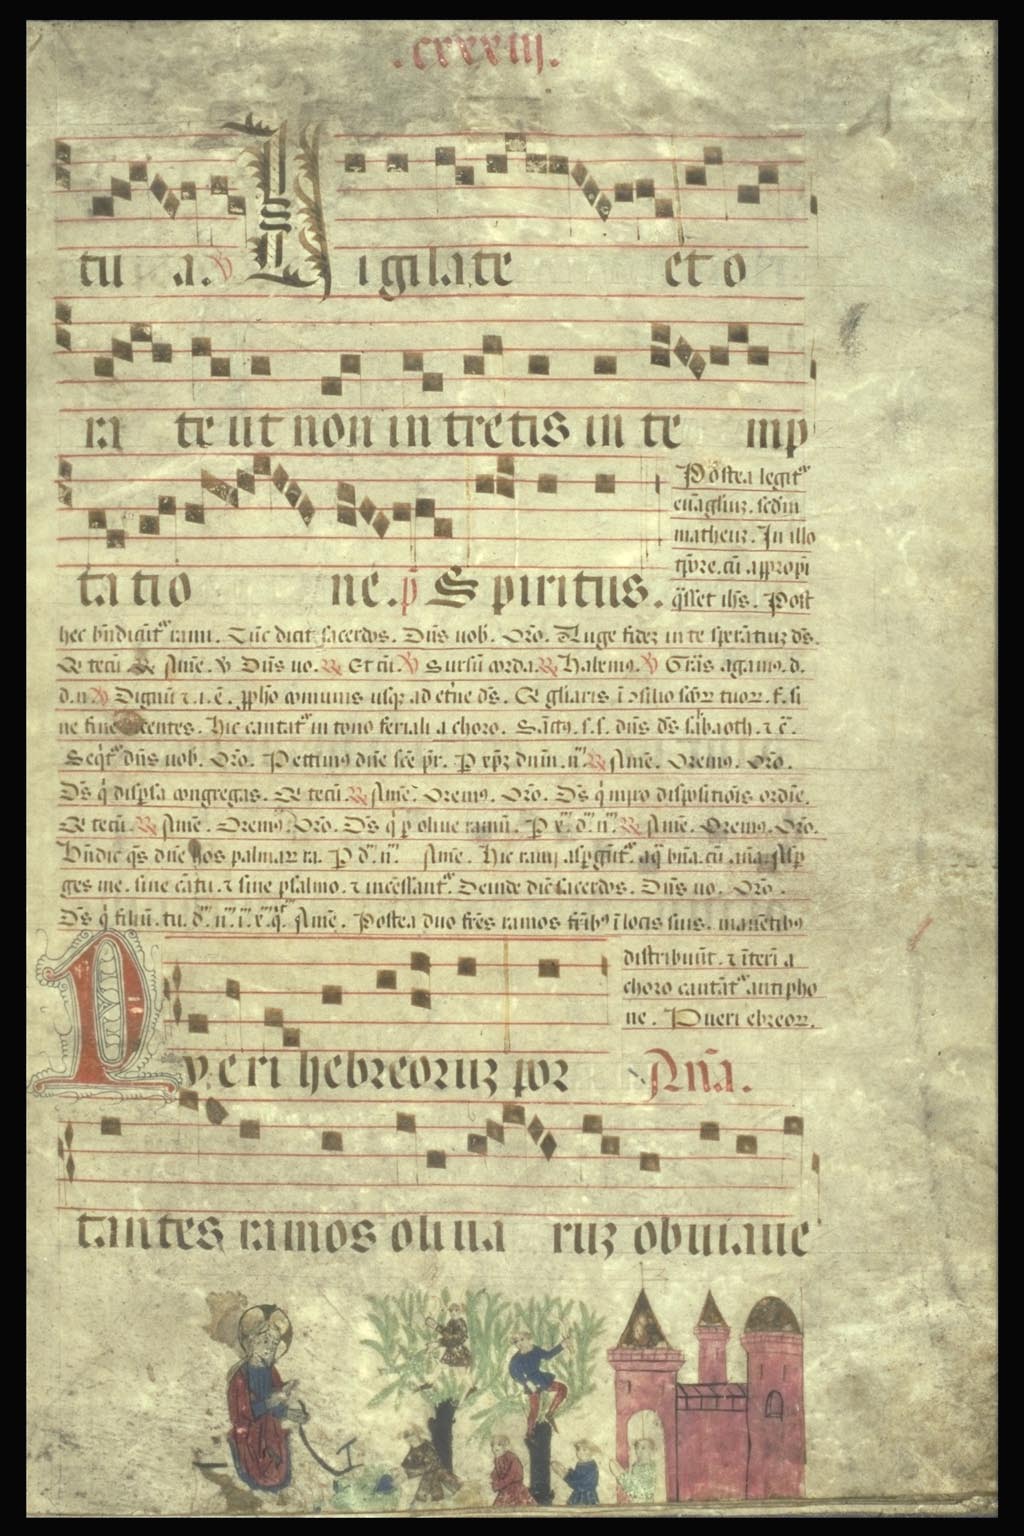 .cxxxiii.
tu a. ℣ Uigilate et o
ra te ut non intretis in te mp
ta tio ne. p̄ Spiritus.
Postea legit᷑
euāgliuꝫ. scd̄m
matheuꝫ. In illo
tp̄ore. cū appropī
q̄sset ih̄s. Post
hec bn̄dicūt᷑ rami. Tūc dicit sacerdos. Dn̄s uob. Oro. Auge fideꝫ in te sperātiuꝫ ds̄.
tecū ℟ Amē. ℣ Dn̄s uo. ℟ Et cū. ℣ Sursū corda. ℟ Habemꝯ. ℣ Grās agamꝯ. d.
d. n ℣ Dignū ⁊. i. ē. comunis usqꝫ ad et̄ne ds̄. gl̄iaris ī ↄsilio sc̄oꝝ tuoꝝ. f. si
ne fine centes. Hic cantat᷑ in tono feriali a choro. Sāctꝯ. s. s. dn̄s ds̄ sabaoth. ⁊ c̄.
Seqt᷑ dn̄s uob. Oro. Petimꝯ dn̄e sc̄e pr̄. P xp̄ꝫ dnm. n. ℟ Amē. Oremꝯ. Oro.
Ds̄ q̇ disp̄sa congregas. tecū. ℟ Amē. Oremꝯ. Oro. Ds̄ q̇ miro dispositiōis ordīe.
tecū. ℟ Amē. Oremꝯ. Oro. Ds̄ q̇ p oliue ramū. P x̄. d. n. ℟ Amē. Oremꝯ. Oro.
Bn̄dic qs̄ dn̄e hos palmaꝝ ra. P d. n. Amē. Hic rami asp̄gūt᷑. aq̄ bn̄a. cū an̄a. Asp
ges me. sine cātu. ⁊ sine psalmo. ⁊ incēsant᷑. Deinde dic̄ sacerdos. Dn̄s uo. Oro.
Ds̄ q̇ filiū. tu. d. n. i. x. q. Amē. Postea duo fr̄es ramos fr̄ibꝯ ī locis suis. manētibꝯ
distribuūt. ⁊ īteri a
choro cantāt᷑ antipho
ne. Pueri ebreoꝝ.
Pveri hebreoruꝫ por An̄a.
tantes ramos oliua ruꝫ obuiaue